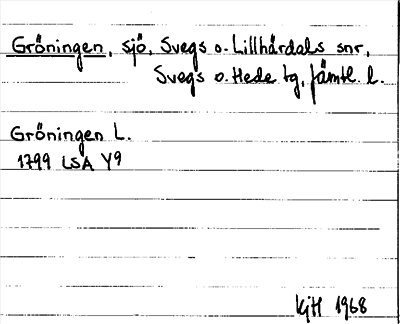 Gröningen, sjö, Svegs o. Lillhärdals snr,
Svegs o. Hede tg, Jämtl. l.
Gröningen L.
1799 LSA Y9
KjH 1968